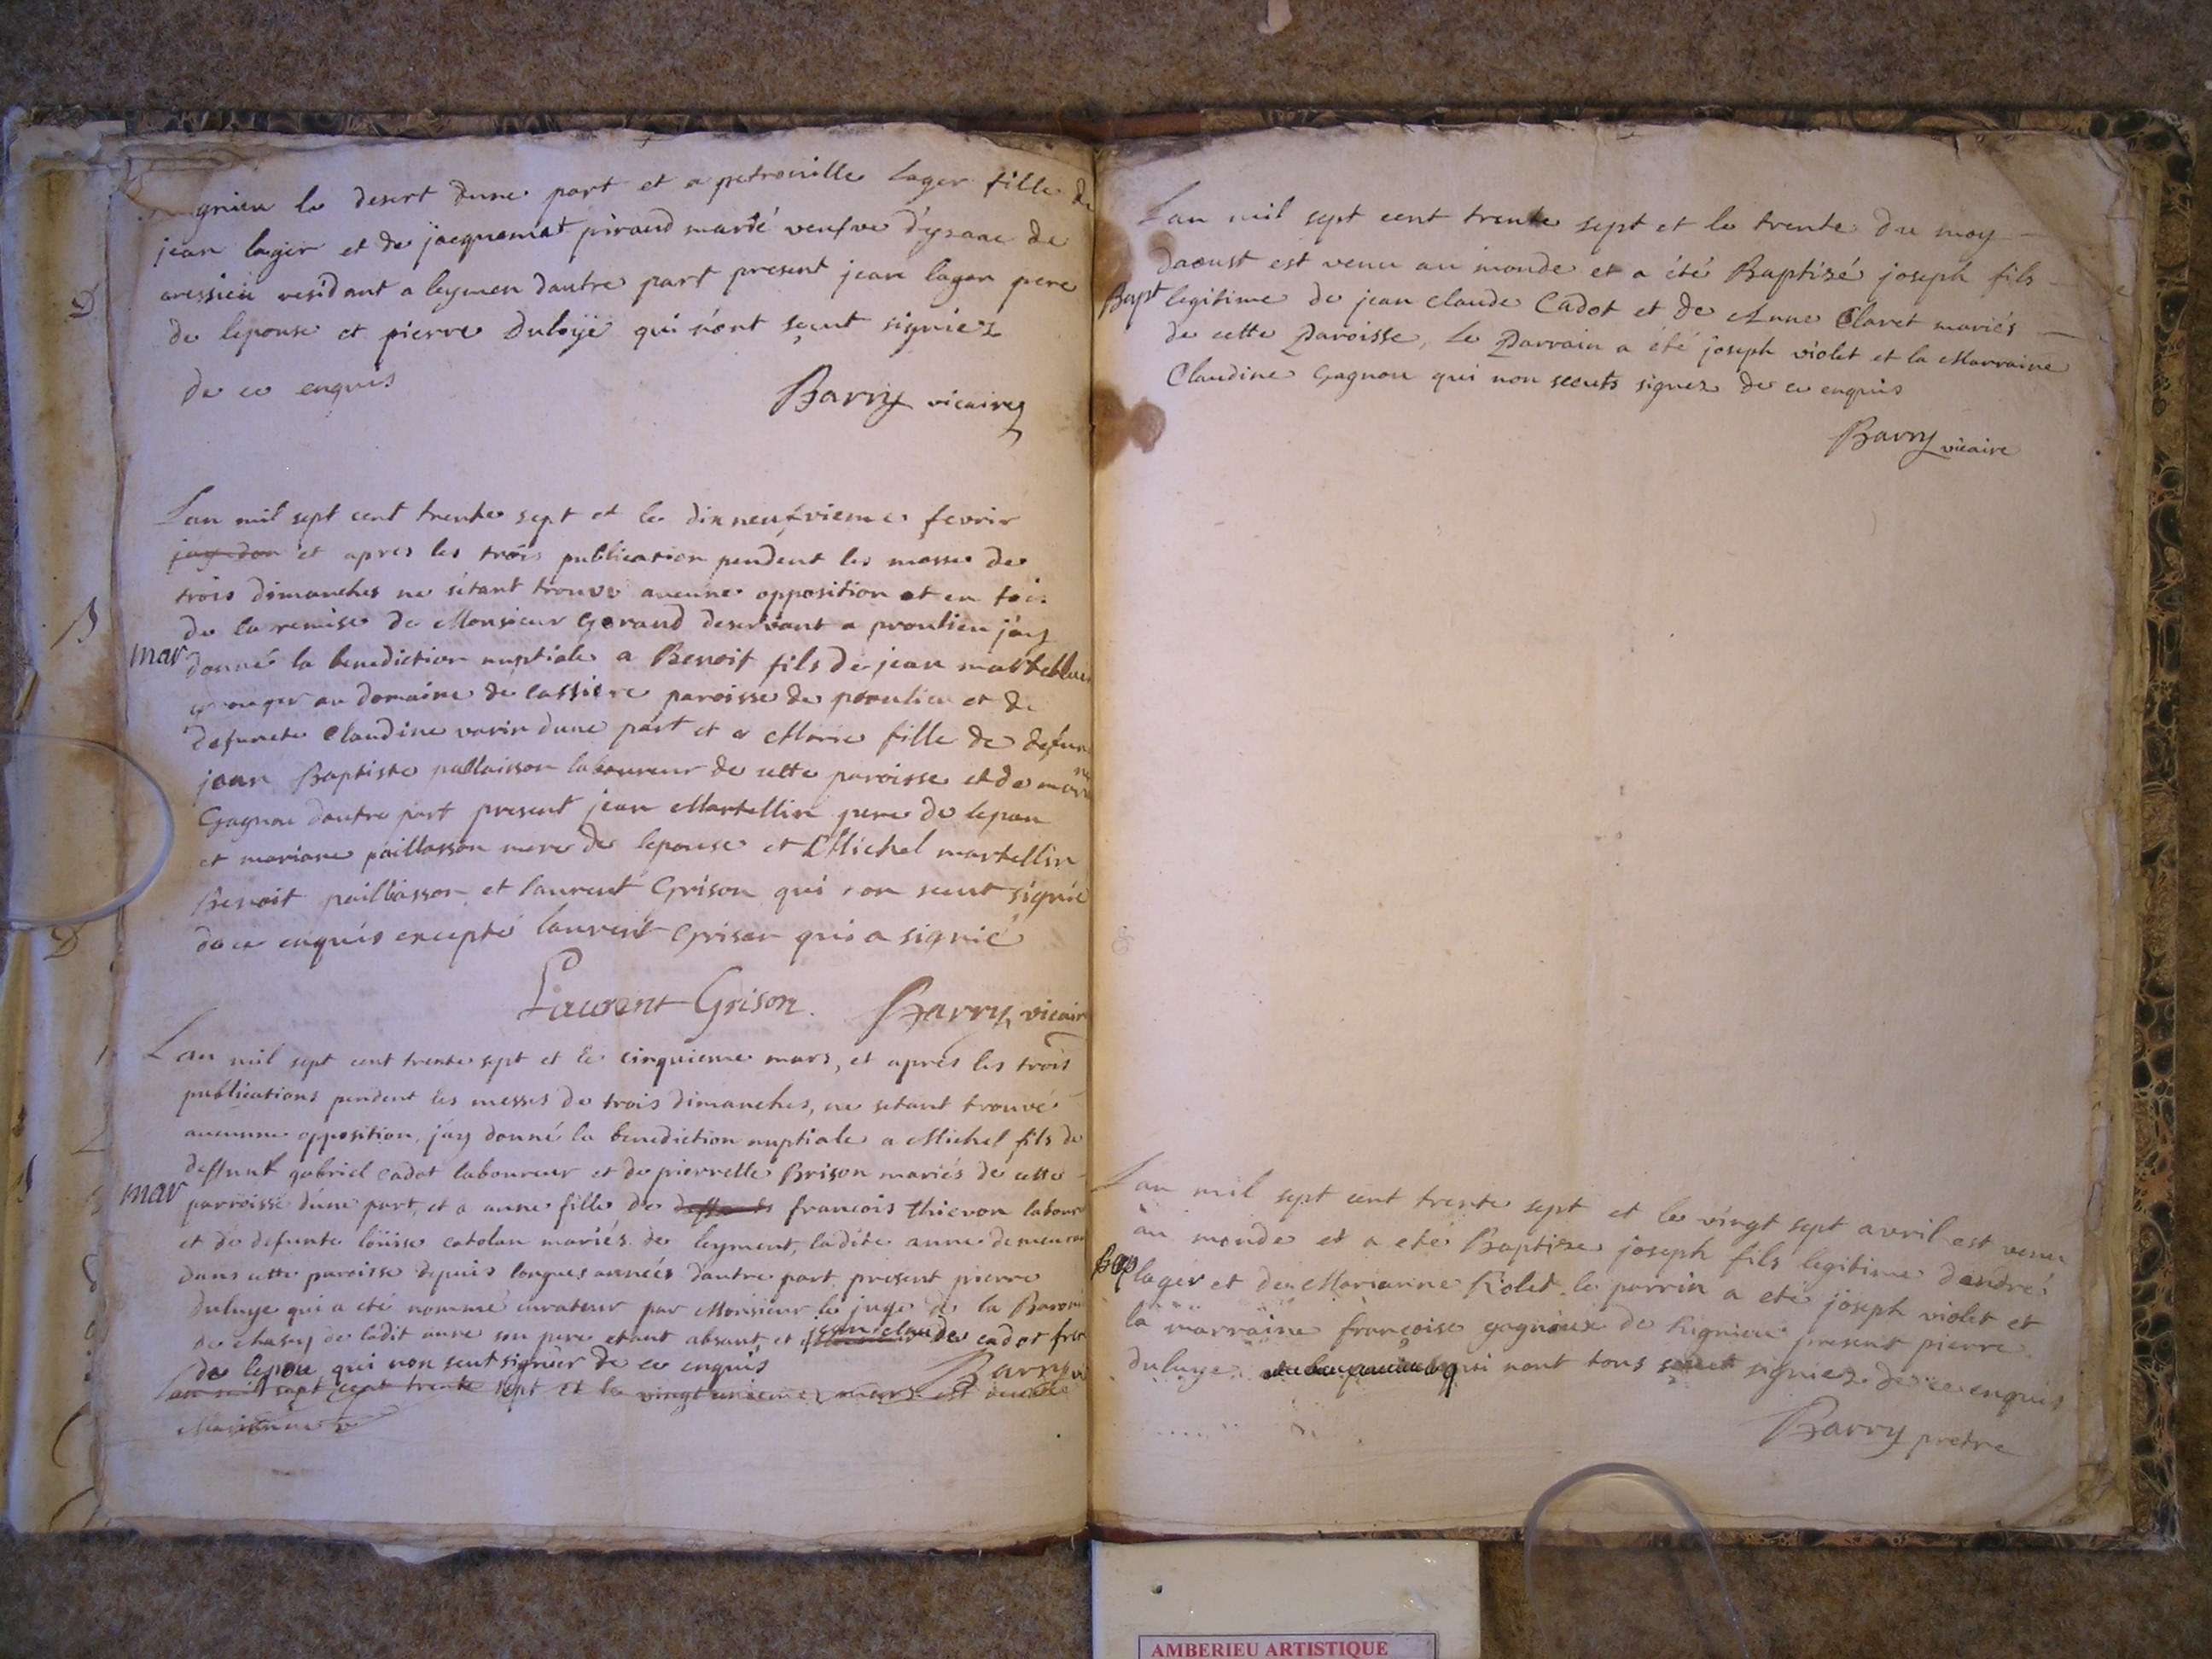 gnieu le desert dune part et a petronille lager fille de
jean lager et de jacquemat piraud marié veufve d'ysaac de
aressieu residant a leymen dautre part present jean lager pere
de lepouse et pierre Duloÿe qui n'ont sçeut signiez
de ce enquis
Barry vicaire
Lan mil sept cent trente sept et le dixneufvieme fevrir
et apres les trois publication pendent les messes de
trois dimanches ne sétant trouve aucune opposition et en foi
de la remise de Monsieur Gerand deservant a proulieu jay
mar
donné la benediction nuptiale a Benoit fils de jean martellin
granger au domaine de lassiere paroisse de proulieu et de
defuncte Claudine varin dune part et a Marie fille de defun
jean Baptiste pallaisson laboureur de cette paroisse et de
Gagnon dautre part present jean Martellin pere de lepou
et mariane paillasson mere de lepouse et Michel martellin
Benoit paillasson et laurent Grison qui non sceut signié
de ce enquis excepté laurent Grison qui a signié
Laurent Grison. Barry vicair
Lan mil sept cent trente sept et le cinquieme mars, et apres les trois
publications pendent les messes de trois dimanches, ne setant trouvé
aucunne opposition, jay donné la benediction nuptiale a Michel fils de
deffunt gabriel cadot laboureur et de pierrette Brison mariés de cette
mar
parroisse d'une part, et a anne fille de francois thievon labour
et de defunte loüise catolan mariés de leyment, ladite anne demeuran
dans cette paroisse depuis longues années dautre part, present pierre
duluye qui a eté nommé curateur par Monsieur le juge de la Baroni
de chasey de ladit anne son pere etant absant, et jean claude cadot frer
de lepou qui non seut signier de ce enquis Barry vi
Lan mil sept cent trente sept et le vingt unieme mars est decedé
Lan mil sept cent trente sept et le trente du moy
daoust est venu au monde et a été Baptizé joseph fils
Bapt legitime de jean claude Cadot et de Anne Claret mariés
de cette Paroisse, Le Parrain a été joseph violet et la Marraine
Claudine Gagnon qui non sceuts signez de ce enquis
Barry vicaire
Lan mil sept cent trente sept et le vingt sept avril est venu
au monde et a eté Baptize joseph fils legitime dandré
Bap lager et de Marianne Rolet le parrin a eté joseph violet et
la marraine françoise gagnieux de hignieu present pierre
duluye qui nont tous sceut signiez de ce enquis
Barry pretre
AMBERIEU ARTISTIQUE